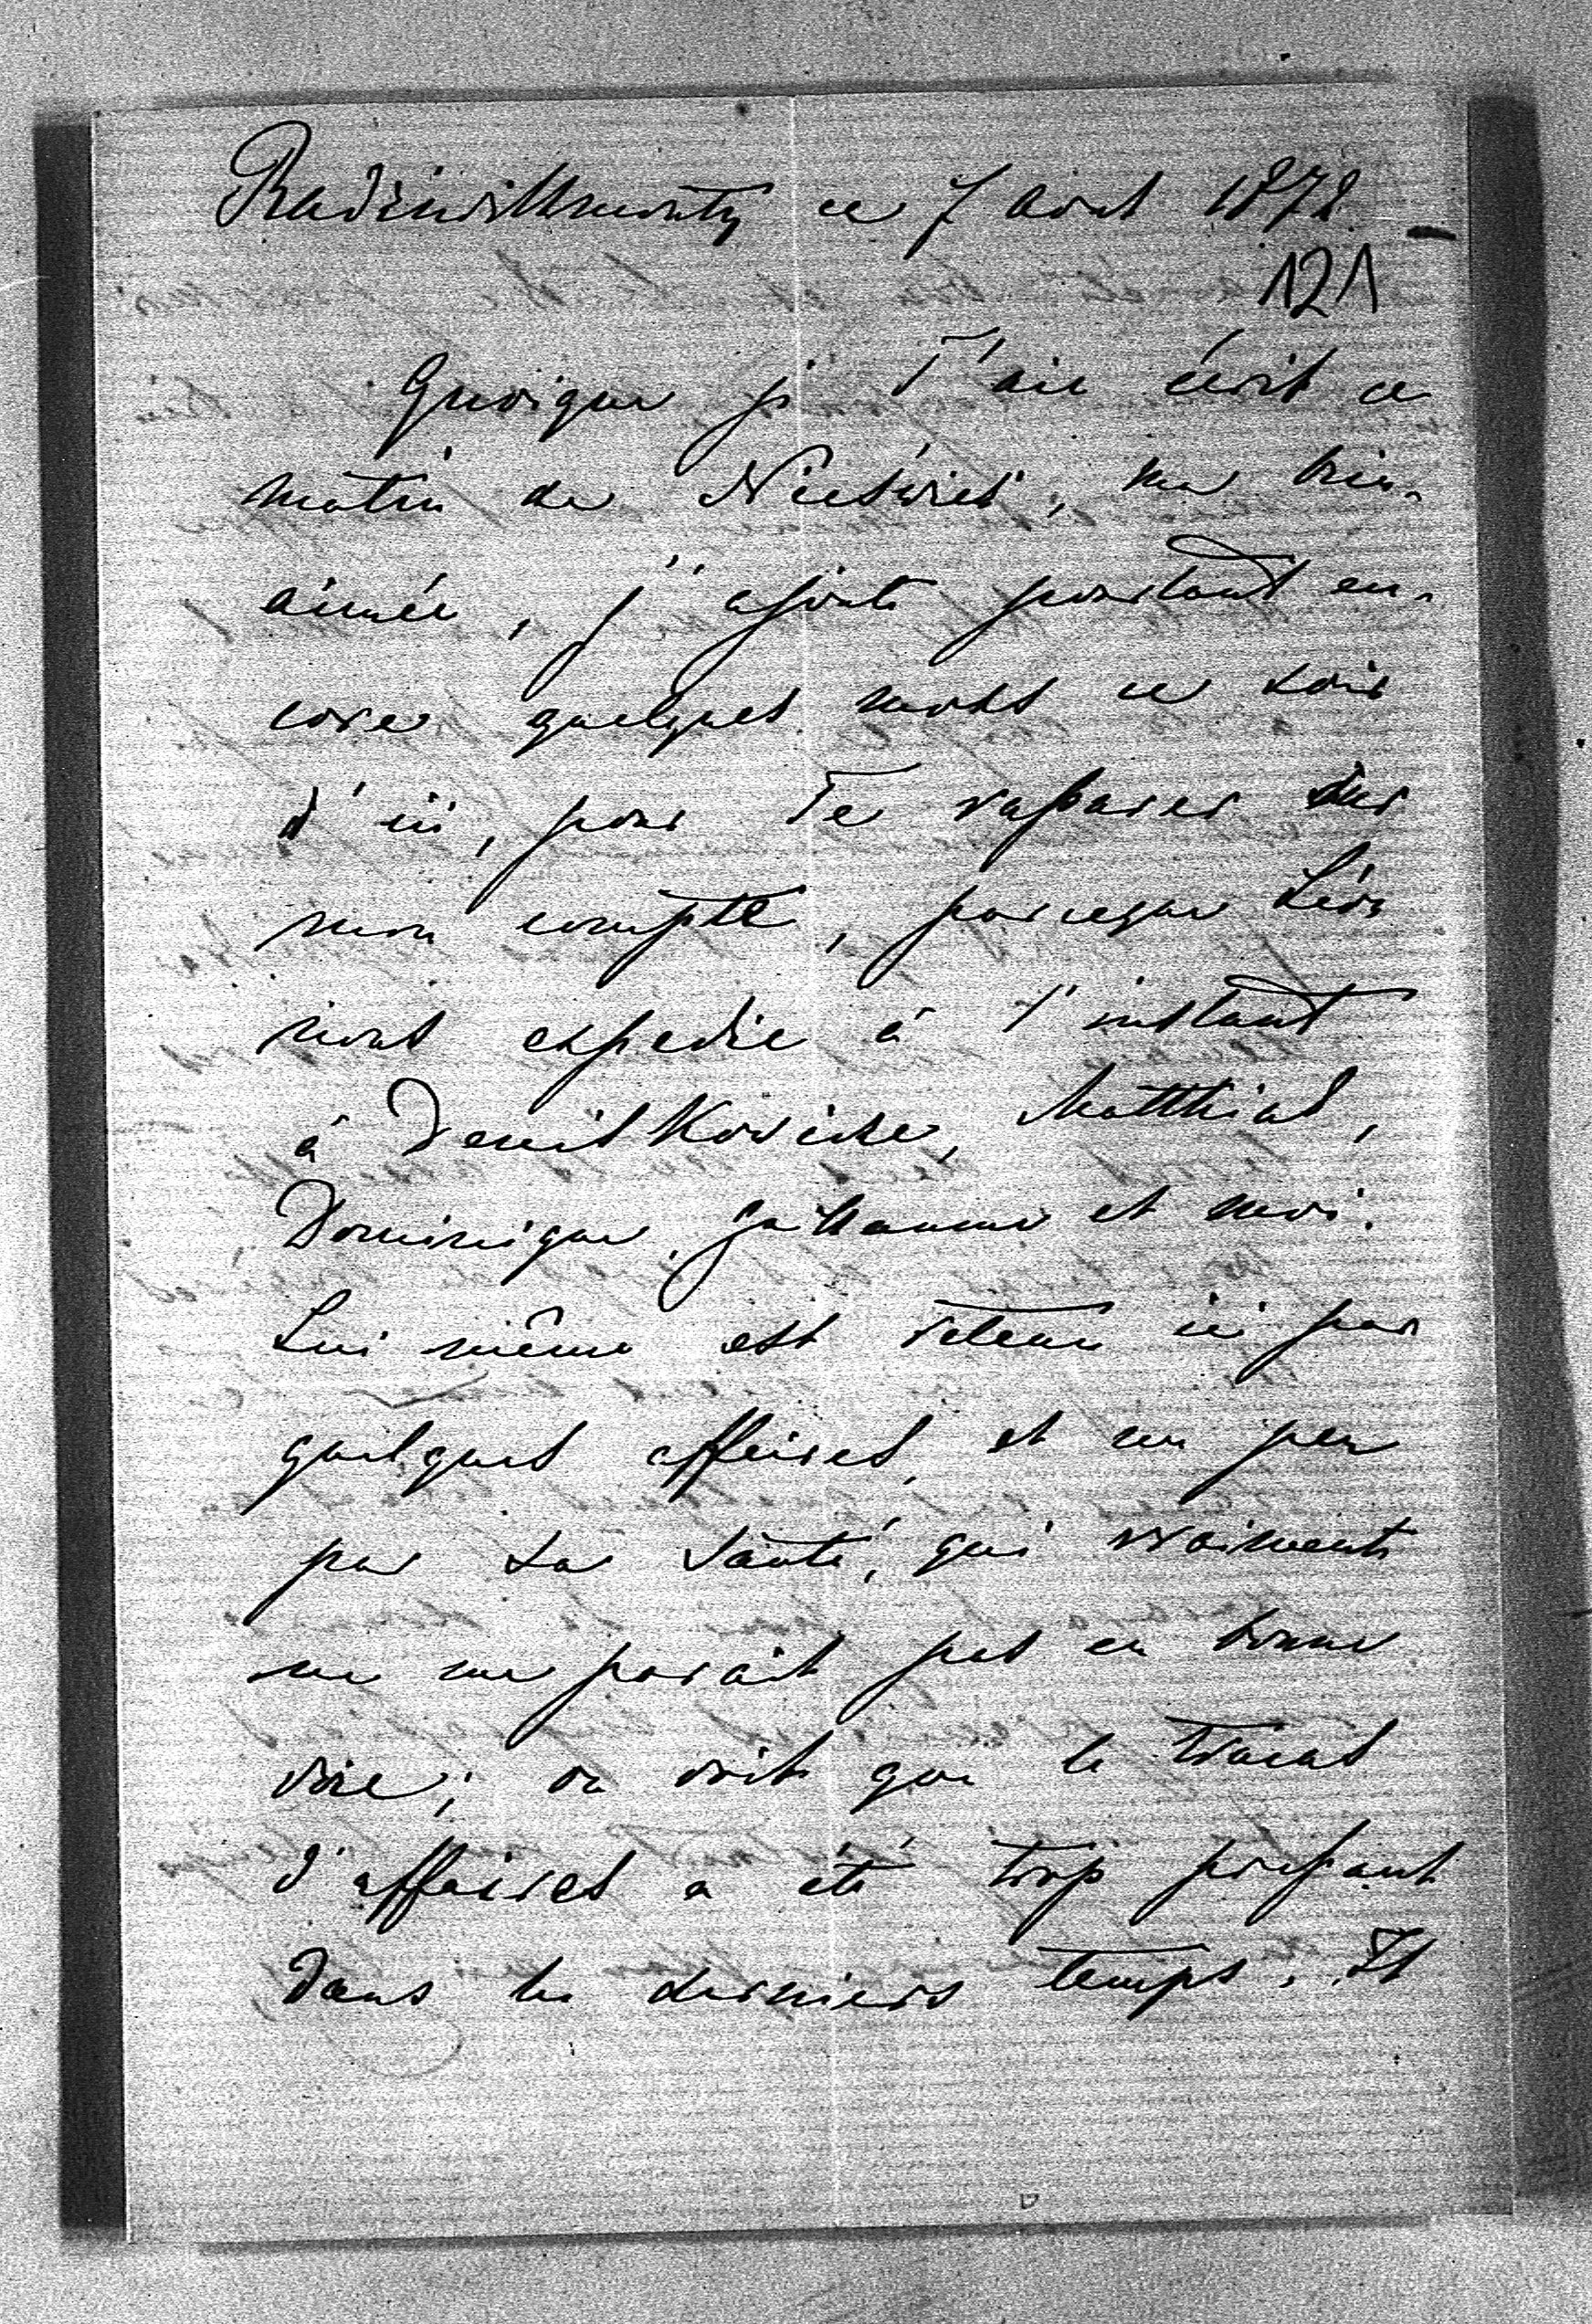 Radziwillmonty ce 7 Aout 1872
121
Quoique je T'aie écrit ce
matin de Nieśwież, ma bien-
aimée, j'ajoute pourtant en-
core quelques mots ce soir
d'ici, pour Te rassurer sur
mon compte, parceque Léon
nous expedie à l'instant
à Deniskowicze, Matthias,
Dominique, et moi.
Lui même est retenu ici par
quelques affaires, et un peu
par sa santé, qui vraiment
ne me parait pas en bonne
voie; on voit que le tracas
d'affaires a été trop pressant
dans les derniers temps. Il